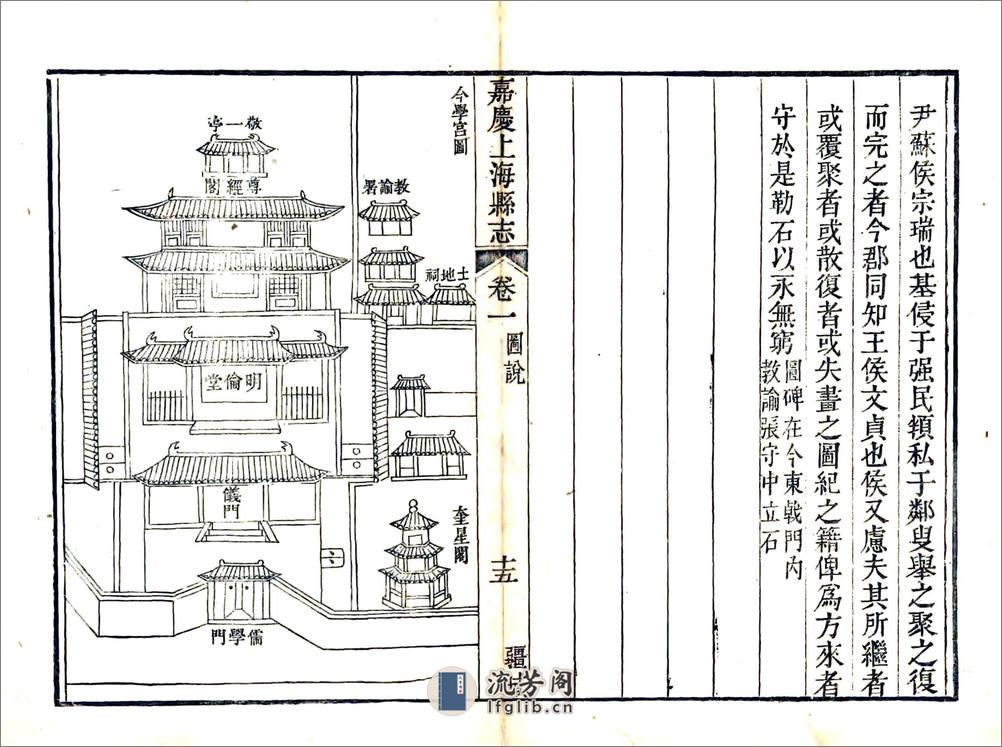 尹蘇侯宗瑞也基侵于强民頖私于鄰叟舉之聚之復
而完之者今郡同知王侯文貞也侯又慮夫其所繼者
或覆聚者或散復者或失畫之圖紀之籍俾爲方來者
守於是勒石以永無窮
圖碑在今東戟門內
教諭張守中立石
嘉慶上海縣志
卷一
圖說
十五
疆
今學宮圖
教諭署
土地祠
奎星閣
敬一亭
尊經閣
明倫堂
儀門
儒學門
流芳阁
lfglib.cn